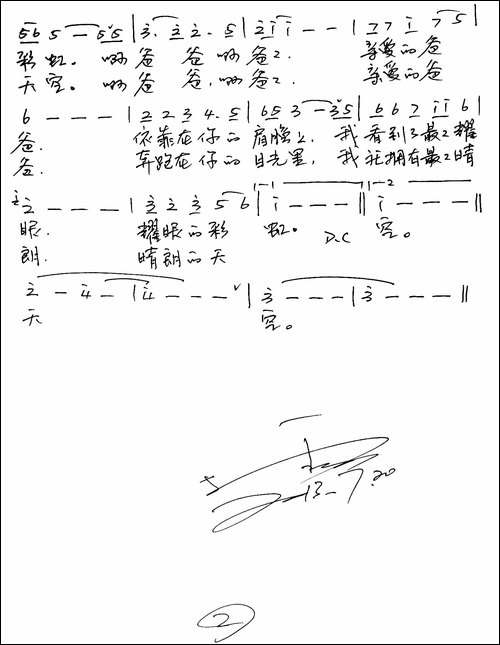 5 6 5 — 5 5 | 3. 3 2. 5 | 2 1 1 — — | 7 7 1 7 5 |
彩虹。啊爸 爸啊爸爸 亲爱的爸
天空。啊爸 爸,啊爸爸. 亲爱的爸
6 — — — | 2 2 3 4. 5 | 6 5 3 — 3 5 | 6 6 7 1 1 6 |
爸. 依靠在你的肩膀上, 我看到了最最耀
爸. 奔跑在你的目光里, 我托拥有最最晴
2 — — — | 3 2 3 5 6 | 1 — — — || 1 — — — ||
眼. 耀眼的彩 虹。 D.C 空。
朗. 晴朗的天
2 — 4 — | 4 — — — | 3 — — — | 3 — — — ||
天 空。
13-7.20
2